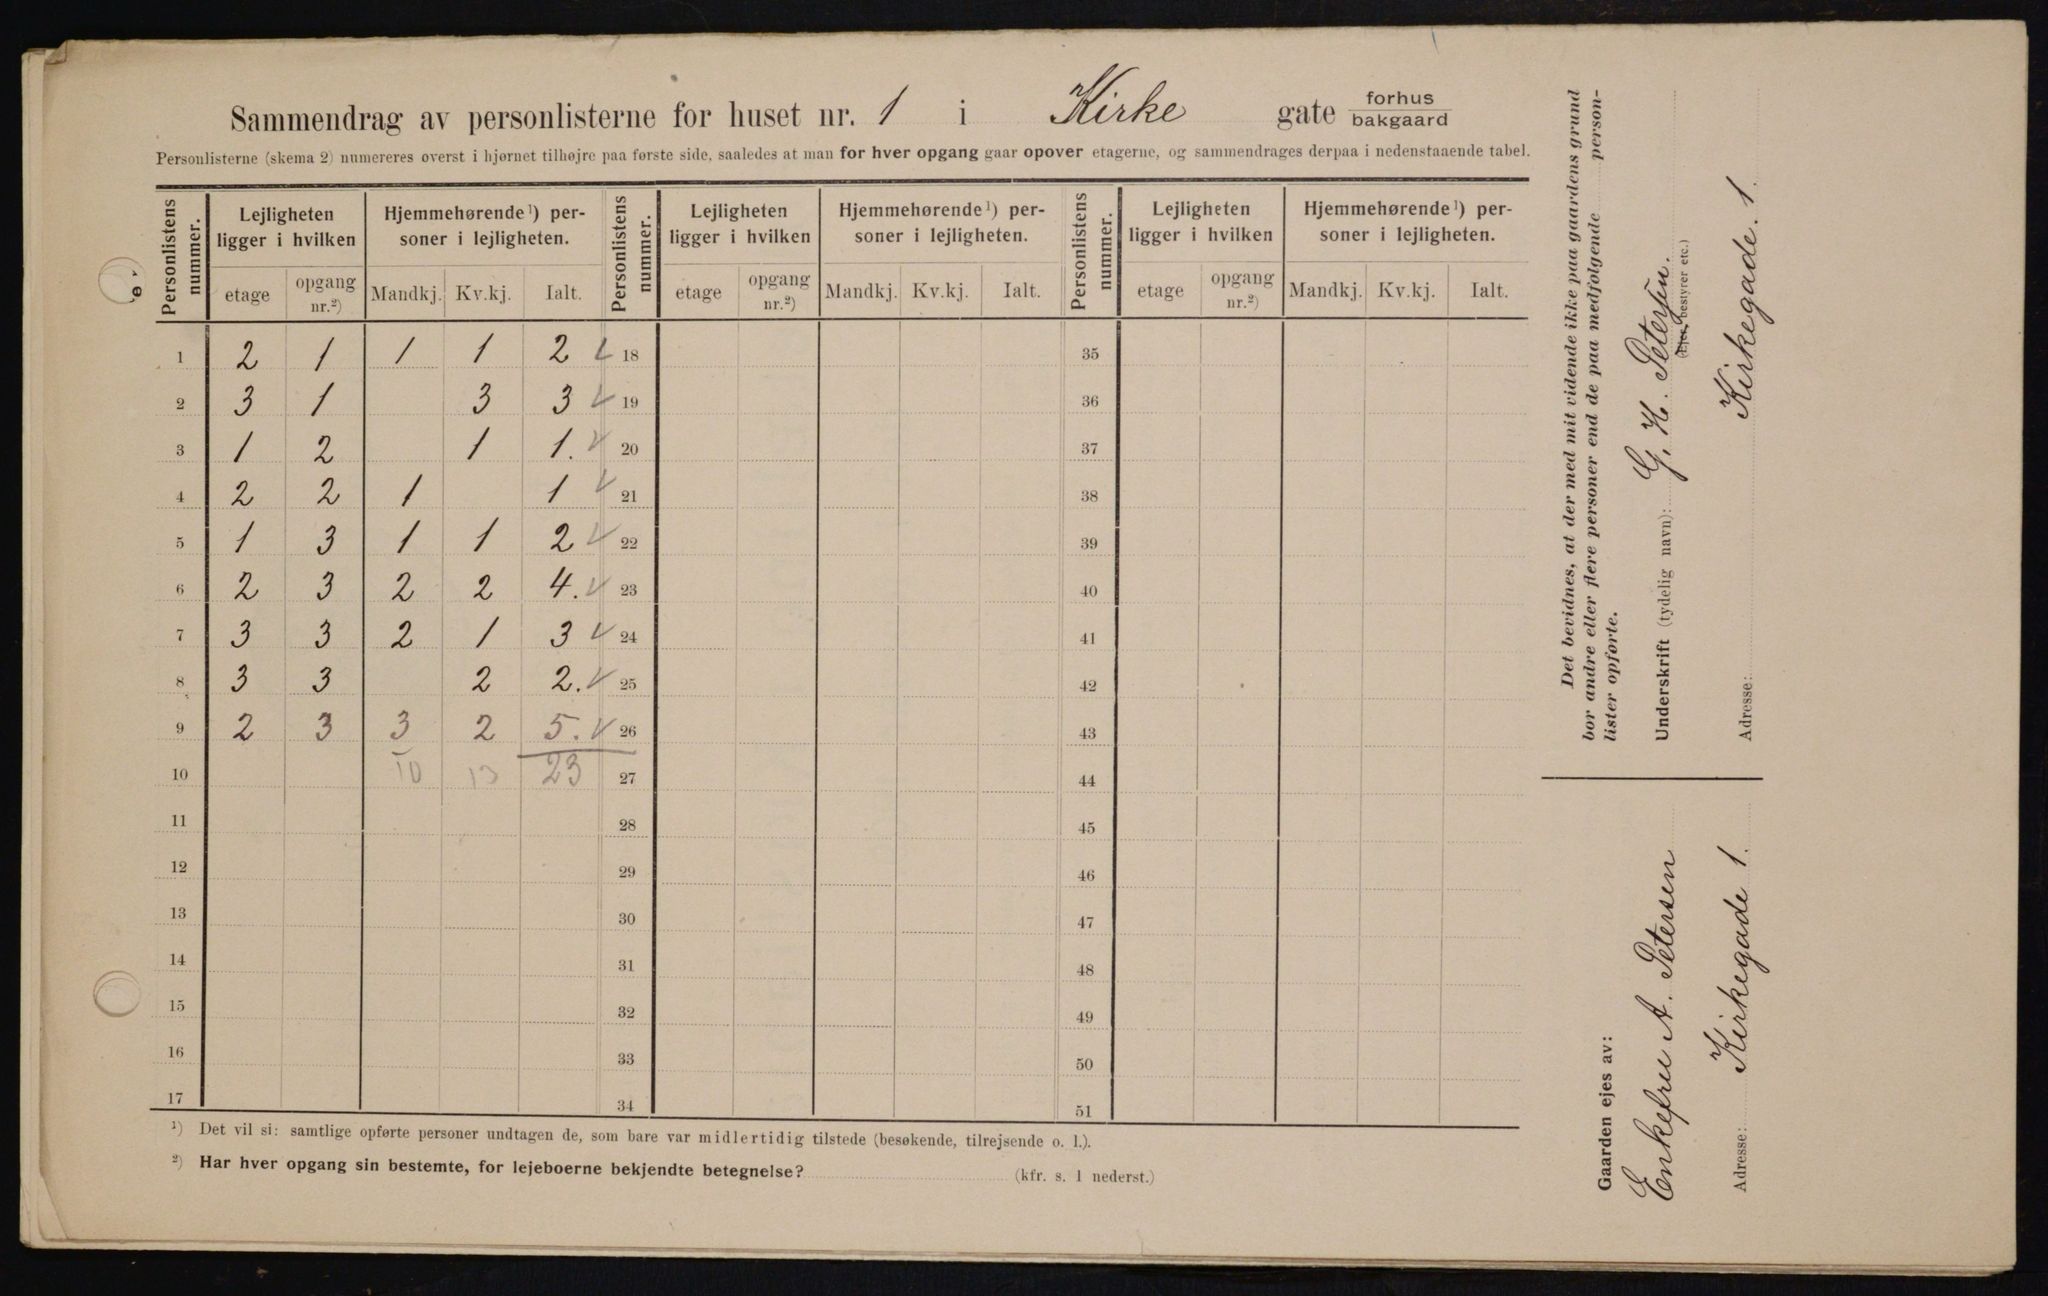 Sammendrag av personlisterne for huset nr. 1 i Kirke gate forhus bakgaard
Personlisterne (skema 2) numereres øverst i hjørnet tilhøjre paa første side, saaledes at man for hver opgang gaar opover etagerne, og sammendrages derpaa i nedenstaaende tabel.
Personlistens nummer. Lejligheten ligger i hvilken Hjemmehørende ¹) personer i lejligheten. Personlistens nummer. Lejligheten ligger i hvilken Hjemmehørende ¹) personer i lejligheten. Personlistens nummer. Lejligheten ligger i hvilken Hjemmehørende ¹) personer i lejligheten.
etage opgang nr.²) Mandkj. Kv.kj. Ialt. etage opgang nr.²) Mandkj. Kv.kj. Ialt. etage opgang nr.²) Mandkj. Kv.kj. Ialt.
1 2 1 1 1 2 ✓ 18 35
2 3 1 3 3 ✓ 19 36
3 1 2 1 1. ✓ 20 37
4 2 2 1 1 ✓ 21 38
5 1 3 1 1 2 ✓ 22 39
6 2 3 2 2 4. ✓ 23 40
7 3 3 2 1 3 ✓ 24 41
8 3 3 2 2. ✓ 25 42
9 2 3 3 2 5. ✓ 26 43
10 10 13 23 27 44
11 28 45
12 29 46
13 30 47
14 31 48
15 32 49
16 33 50
17 34 51
¹) Det vil si: samtlige opførte personer undtagen de, som bare var midlertidig tilstede (besøkende, tilrejsende o. l.).
²) Har hver opgang sin bestemte, for lejeboerne bekjendte betegnelse? (kfr. s. 1 nederst.)
Det bevidnes, at der med mit vidende ikke paa gaardens grund
bor andre eller flere personer end de paa medfølgende person-
lister opførte.
Underskrift (tydelig navn): G. H. Petersen.
(Ejer, bestyrer etc.)
Adresse: Kirkegade. 1.
Gaarden ejes av:
Enkefru A. Petersen
Adresse: Kirkegade 1.